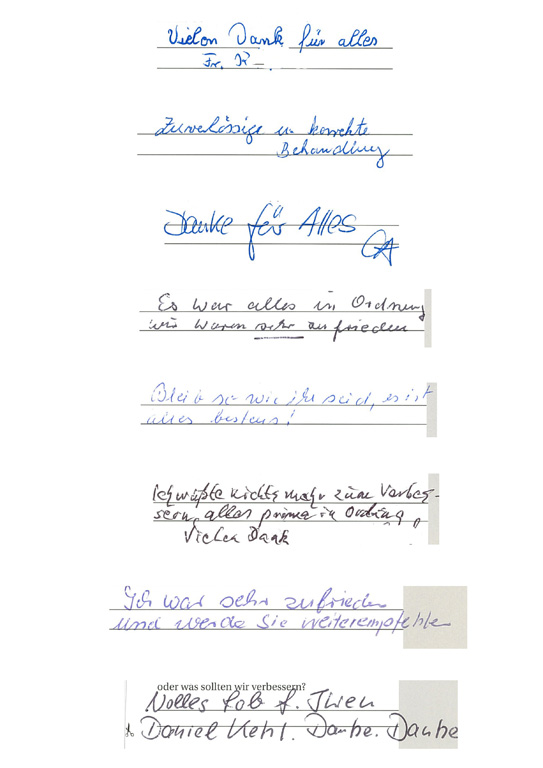 Vielen Dank für alles
Fr. K
Zuverlässige u korrekte
Behandlung
Danke für Alles
Es war alles in Ordnung
wir waren sehr zufrieden
Bleib so wie ihr seid, es ist
alles bestens!
Ich wüßte nichts mehr zum Verbes-
sern, alles prima in Ordnung,
Vielen Dank
Ich war sehr zufrieden
und werde Sie weiterempfehlen
oder was sollten wir verbessern?
Volles Lob f. Ihren
Daniel Kehl. Danke. Danke